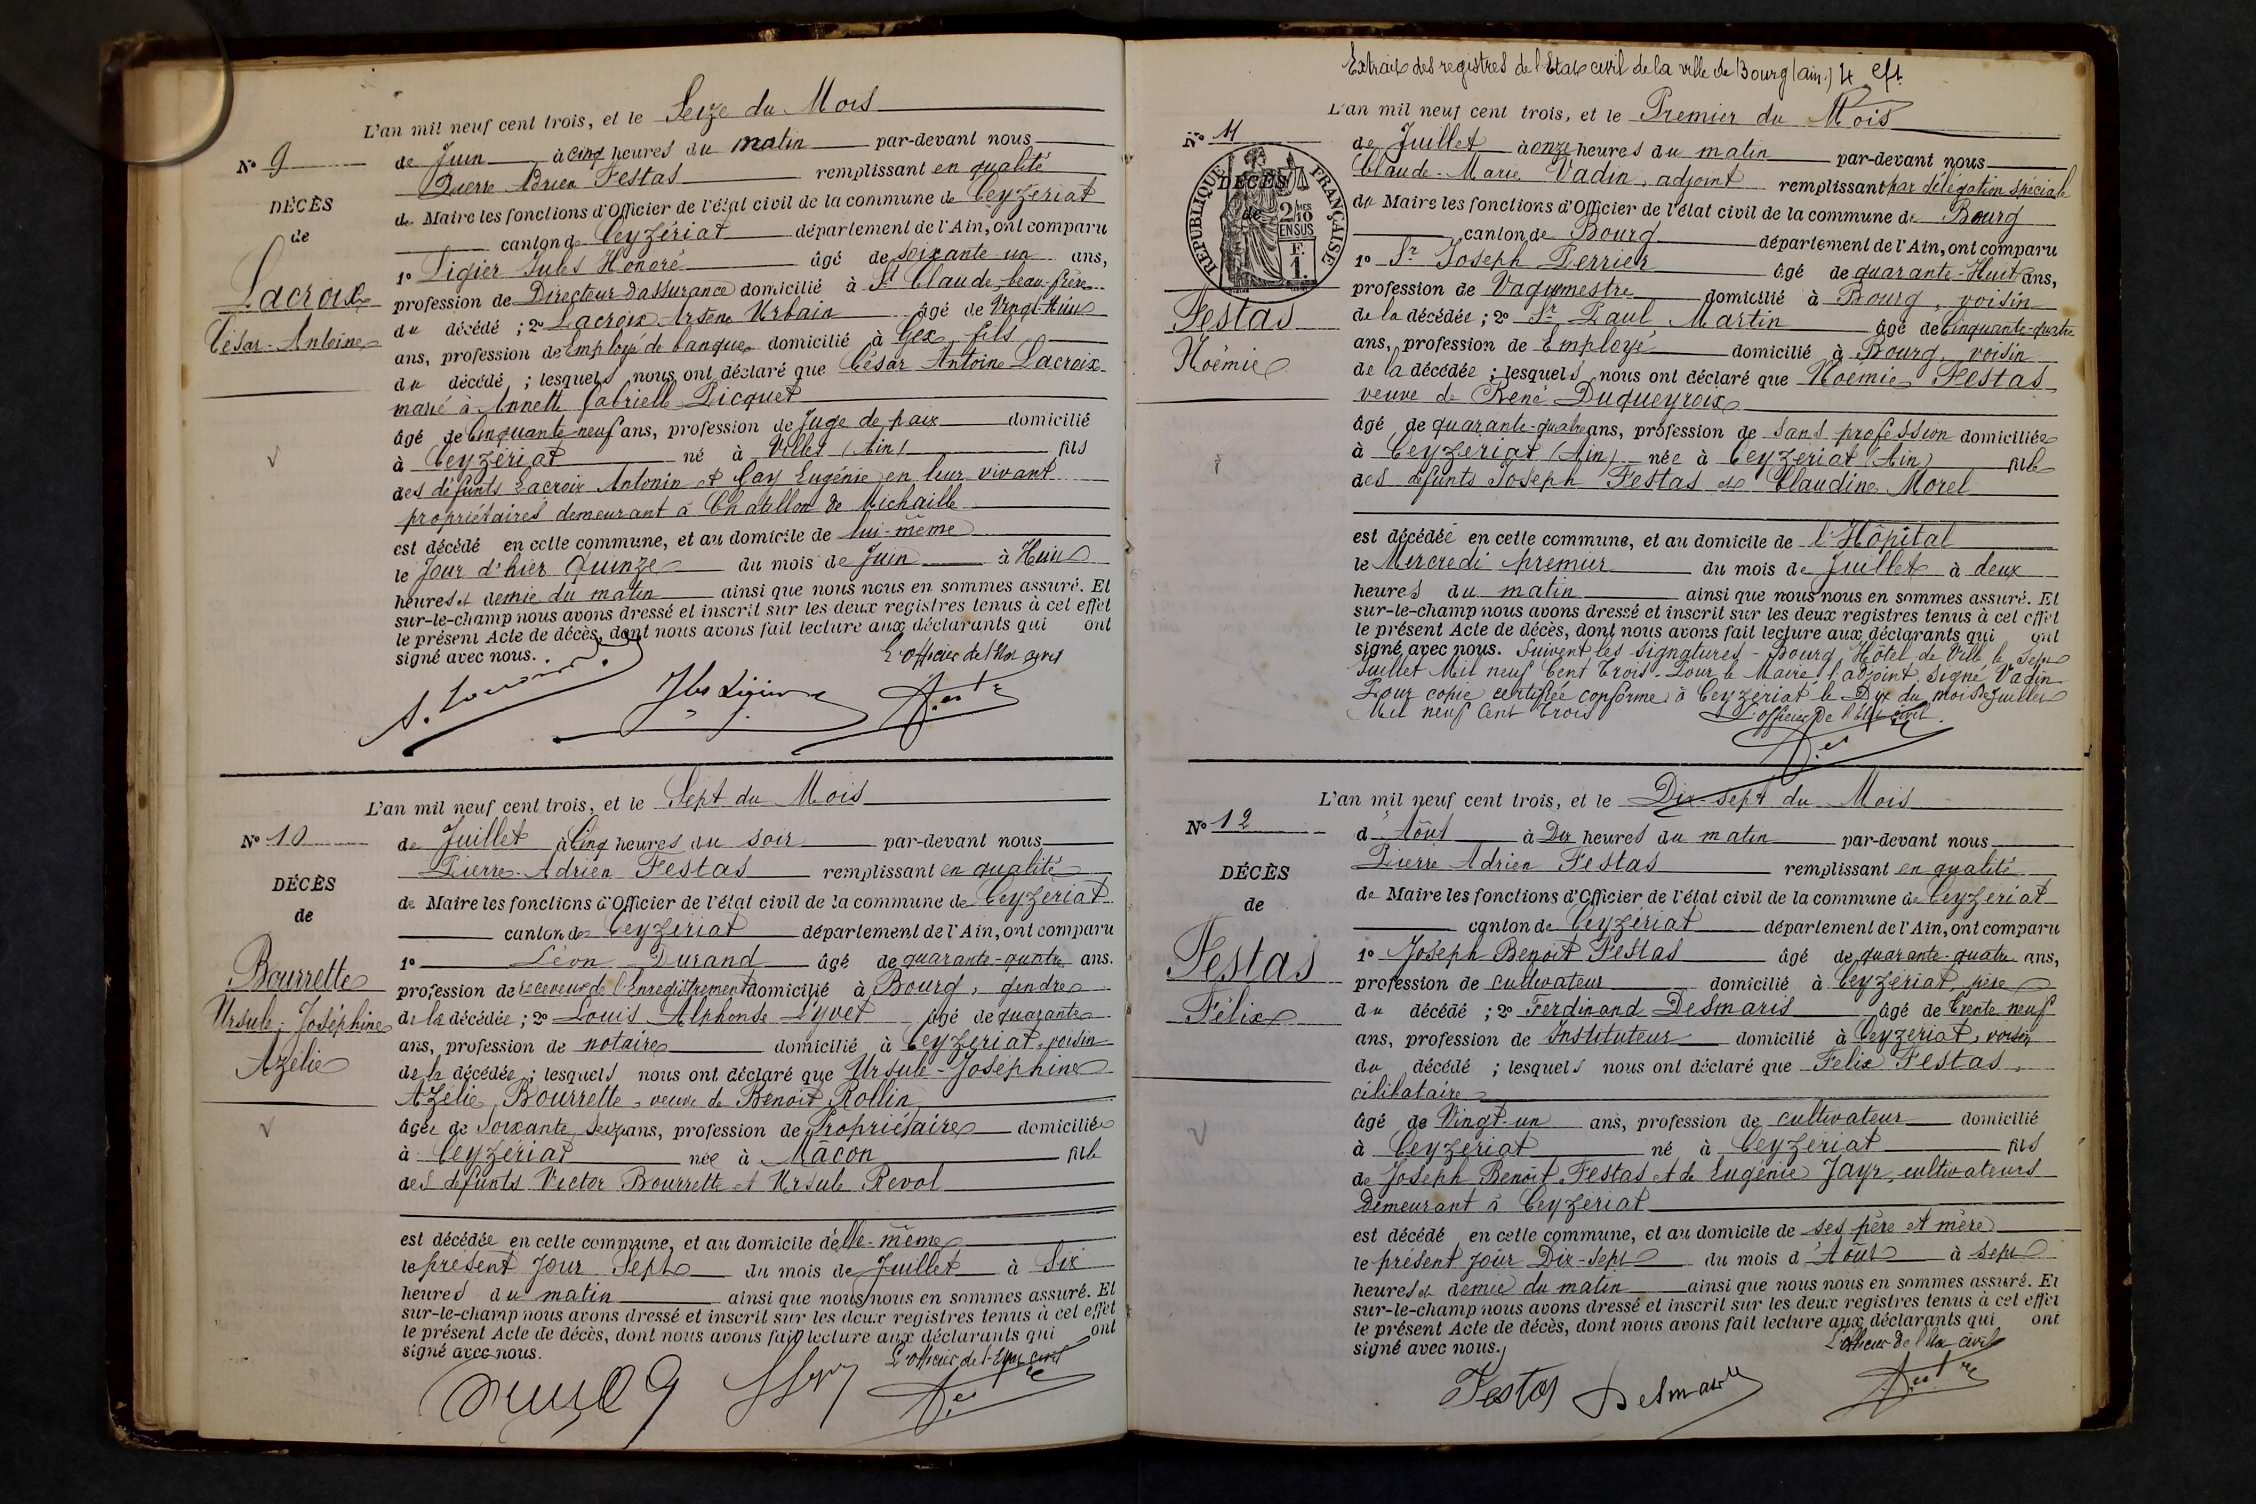 L'an mil neuf cent trois, et le Seize du Mois
N° 9
de Juin à cinq heures du matin par-devant nous
Pierre Adrien Festas remplissant en qualité
DÉCÈS
de Maire les fonctions d'Officier de l'état civil de la commune de Ceyzériat
de
canton de Ceyzériat département de l'Ain, ont comparu
1° Ligier Jules Honoré âgé de soixante un ans,
Lacroix
profession de Directeur d'assurance domicilié à St Claude, beau-frère
César-Antoine
du décédé ; 2° Lacroix Arsène Urbain âgé de Vingt-Huit
ans, profession de Employé de banque domicilié à Gex, fils
du décédé ; lesquels nous ont déclaré que César Antoine Lacroix
marié à Annette Gabrielle Picquet
âgé de Cinquante-neuf ans, profession de Juge de paix domicilié
à Ceyzériat né à Villes (Ain) fils
des défunts Lacroix Antonin et Gay Eugénie en leur vivant
propriétaires demeurant à Chatillon de Michaille
est décédé en cette commune, et au domicile de lui-même
le Jour d'hier Quinze du mois de Juin à Huit
heures et demie du matin ainsi que nous nous en sommes assuré. Et
sur-le-champ nous avons dressé et inscrit sur les deux registres tenus à cet effet
le présent Acte de décès, dont nous avons fait lecture aux déclarants qui ont
signé avec nous.
L'officier de l'Etat civil
Jles Ligier
L'an mil neuf cent trois, et le Sept du Mois
N° 10
de Juillet à Cinq heures du soir par-devant nous
Pierre-Adrien Festas remplissant en qualité
DÉCÈS
de Maire les fonctions d'Officier de l'état civil de la commune de Ceyzériat
de
canton de Ceyzériat département de l'Ain, ont comparu
1° Léon Durand âgé de quarante-quatre ans.
Bourrette
profession de receveur de l'Enregistrement domicilié à Bourg, gendre
Ursule-Joséphine
de la décédée ; 2° Louis Alphonse Lyvet âgé de quarante
ans, profession de notaire domicilié à Ceyzériat, voisin
Azélie
de la décédée ; lesquels nous ont déclaré que Ursule-Joséphine
Azélie Bourrette, veuve de Benoit Rollin
âgée de soixante seize ans, profession de Propriétaire domiciliée
à Ceyzériat née à Mâcon fille
des défunts Victor Bourrette et Ursule Revol
est décédée en cette commune, et au domicile d'elle-même
le présent jour Sept du mois de Juillet à Six
heures du matin ainsi que nous nous en sommes assuré. Et
sur-le-champ nous avons dressé et inscrit sur les deux registres tenus à cet effet
le présent Acte de décès, dont nous avons fait lecture aux déclarants qui ont
signé avec nous.
L'officier de l'Etat civil
Extrait des registres de l'Etat civil de la ville de Bourg (ain.)
L'an mil neuf cent trois, et le Premier du Mois
N° 11
de Juillet à onze heures du matin par-devant nous
Claude-Marie Vadin, adjoint remplissant par délégation spéciale
RÉPUBLIQUE FRANÇAISE
DÉCÈS
de
2/10 MES EN SUS
F. 1.
du Maire les fonctions d'Officier de l'état civil de la commune de Bourg
canton de Bourg département de l'Ain, ont comparu
1° Sr Joseph Perrier âgé de quarante-Huit ans,
profession de Vaguemestre domicilié à Bourg, voisin
Festas
de la décédée ; 2° Sr Paul Martin âgé de Cinquante-quatre
Noémie
ans, profession de Employé domicilié à Bourg, voisin
de la décédée ; lesquels nous ont déclaré que Noémie Festas
veuve de René Duqueyroix
âgé de quarante-quatre ans, profession de sans profession domiciliée
à Ceyzériat (Ain) née à Ceyzériat (Ain) fille
des défunts Joseph Festas et Claudine Morel
est décédée en cette commune, et au domicile de l'Hôpital
le Mercredi premier du mois de Juillet à deux
heures du matin ainsi que nous nous en sommes assuré. Et
sur-le-champ nous avons dressé et inscrit sur les deux registres tenus à cet effet
le présent Acte de décès, dont nous avons fait lecture aux déclarants qui ont
signé avec nous. Suivent les signatures - Bourg, Hôtel de Ville, le Sept
Juillet Mil neuf Cent Trois. Pour le Maire l'adjoint, Signé Vadin
Pour copie certifiée conforme à Ceyzériat le Dix du mois de Juillet
Mil neuf Cent Trois
L'officier de l'Etat civil
L'an mil neuf cent trois, et le Dix-sept du Mois
N° 12
d'Août à Dix heures du matin par-devant nous
Pierre Adrien Festas remplissant en qualité
DÉCÈS
de Maire les fonctions d'Officier de l'état civil de la commune de Ceyzériat
de
canton de Ceyzériat département de l'Ain, ont comparu
1° Joseph Benoit Festas âgé de quarante-quatre ans,
Festas
profession de cultivateur domicilié à Ceyzériat, père
Félix
du décédé ; 2° Ferdinand Desmaris âgé de Trente neuf
ans, profession de Instituteur domicilié à Ceyzériat, voisin
du décédé ; lesquels nous ont déclaré que Felix Festas,
célibataire
âgé de Vingt-un ans, profession de cultivateur domicilié
à Ceyzériat né à Ceyzériat fils
de Joseph Benoît Festas et de Eugénie Jayr, cultivateurs
Demeurant à Ceyzériat
est décédé en cette commune, et au domicile de ses père et mère
le présent jour Dix-sept du mois d'Août à sept
heures et demie du matin ainsi que nous nous en sommes assuré. Et
sur-le-champ nous avons dressé et inscrit sur les deux registres tenus à cet effet
le présent Acte de décès, dont nous avons fait lecture aux déclarants qui ont
signé avec nous.
L'officier de l'Etat civil
Festas Desmaris